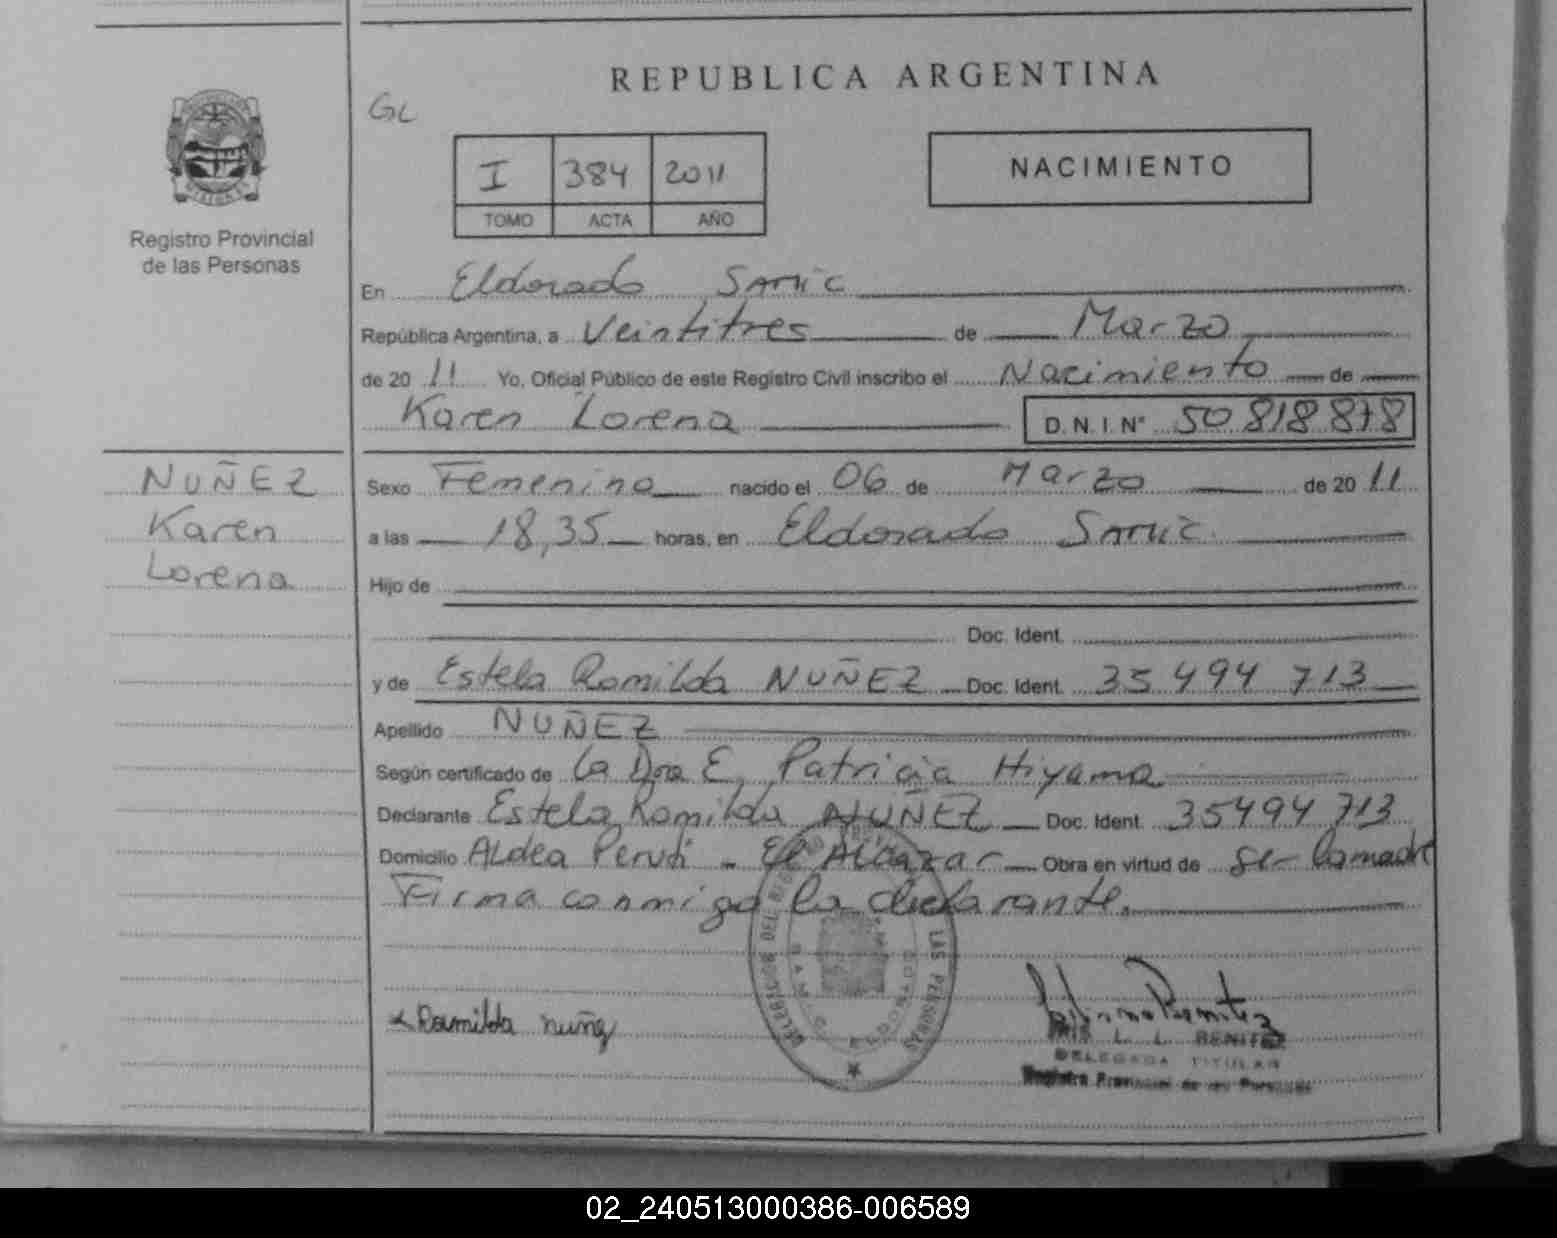 REPUBLICA ARGENTINA
GL
I 384 2011
TOMO ACTA AÑO
NACIMIENTO
Registro Provincial
de las Personas
En Eldorado SAMIC
República Argentina, a Veintitres de Marzo
de 20 11 Yo, Oficial Público de este Registro Civil inscribo el Nacimiento de
Karen Lorena D.N.I. N° 50 818 878
NUÑEZ
Karen
Lorena
Sexo Femenino nacido el 06 de Marzo de 20 11
a las 18,35 horas, en Eldorado SAMIC
Hijo de
Doc. Ident.
y de Estela Romilda NUÑEZ Doc. Ident. 35 494 713
Apellido NUÑEZ
Según certificado de La Dra E. Patricia Hiyama
Declarante Estela Romilda NUÑEZ Doc. Ident. 35494 713
Domicilio ALdea Peruti - El Alcazar Obra en virtud de ser la madre
Firma conmigo la declarante.
Romilda nuñez
L. L. BENITEZ
DELEGADA TITULAR
Registro Provincial de las Personas
02_240513000386-006589